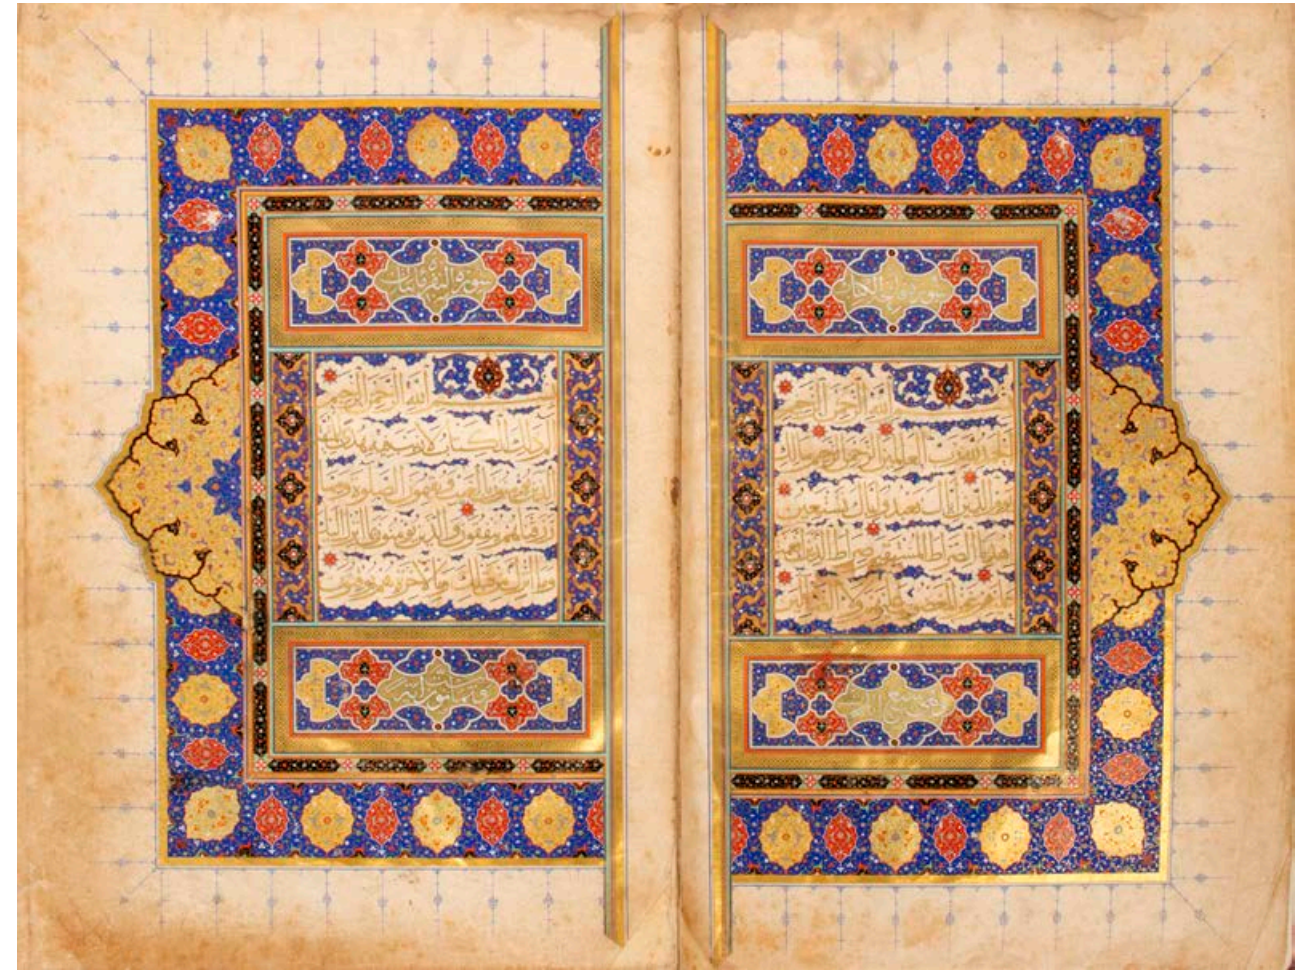 سورة فاتحة الكتاب
بسم الله الرحمن الرحيم
الحمد لله رب العالمين الرحمن الرحيم مالك
يوم الدين اياك نعبد واياك نستعين
اهدنا الصراط المستقيم صراط الذين انعمت
عليهم غير المغضوب عليهم ولا الضالين
سبع
2
سورة البقرة
بسم الله الرحمن الرحيم
الم ذلك الكتاب لا ريب فيه هدى للمتقين
الذين يؤمنون بالغيب ويقيمون الصلوة ومما
رزقناهم ينفقون والذين يؤمنون بما انزل اليك
وما انزل من قبلك وبالاخرة هم يوقنون